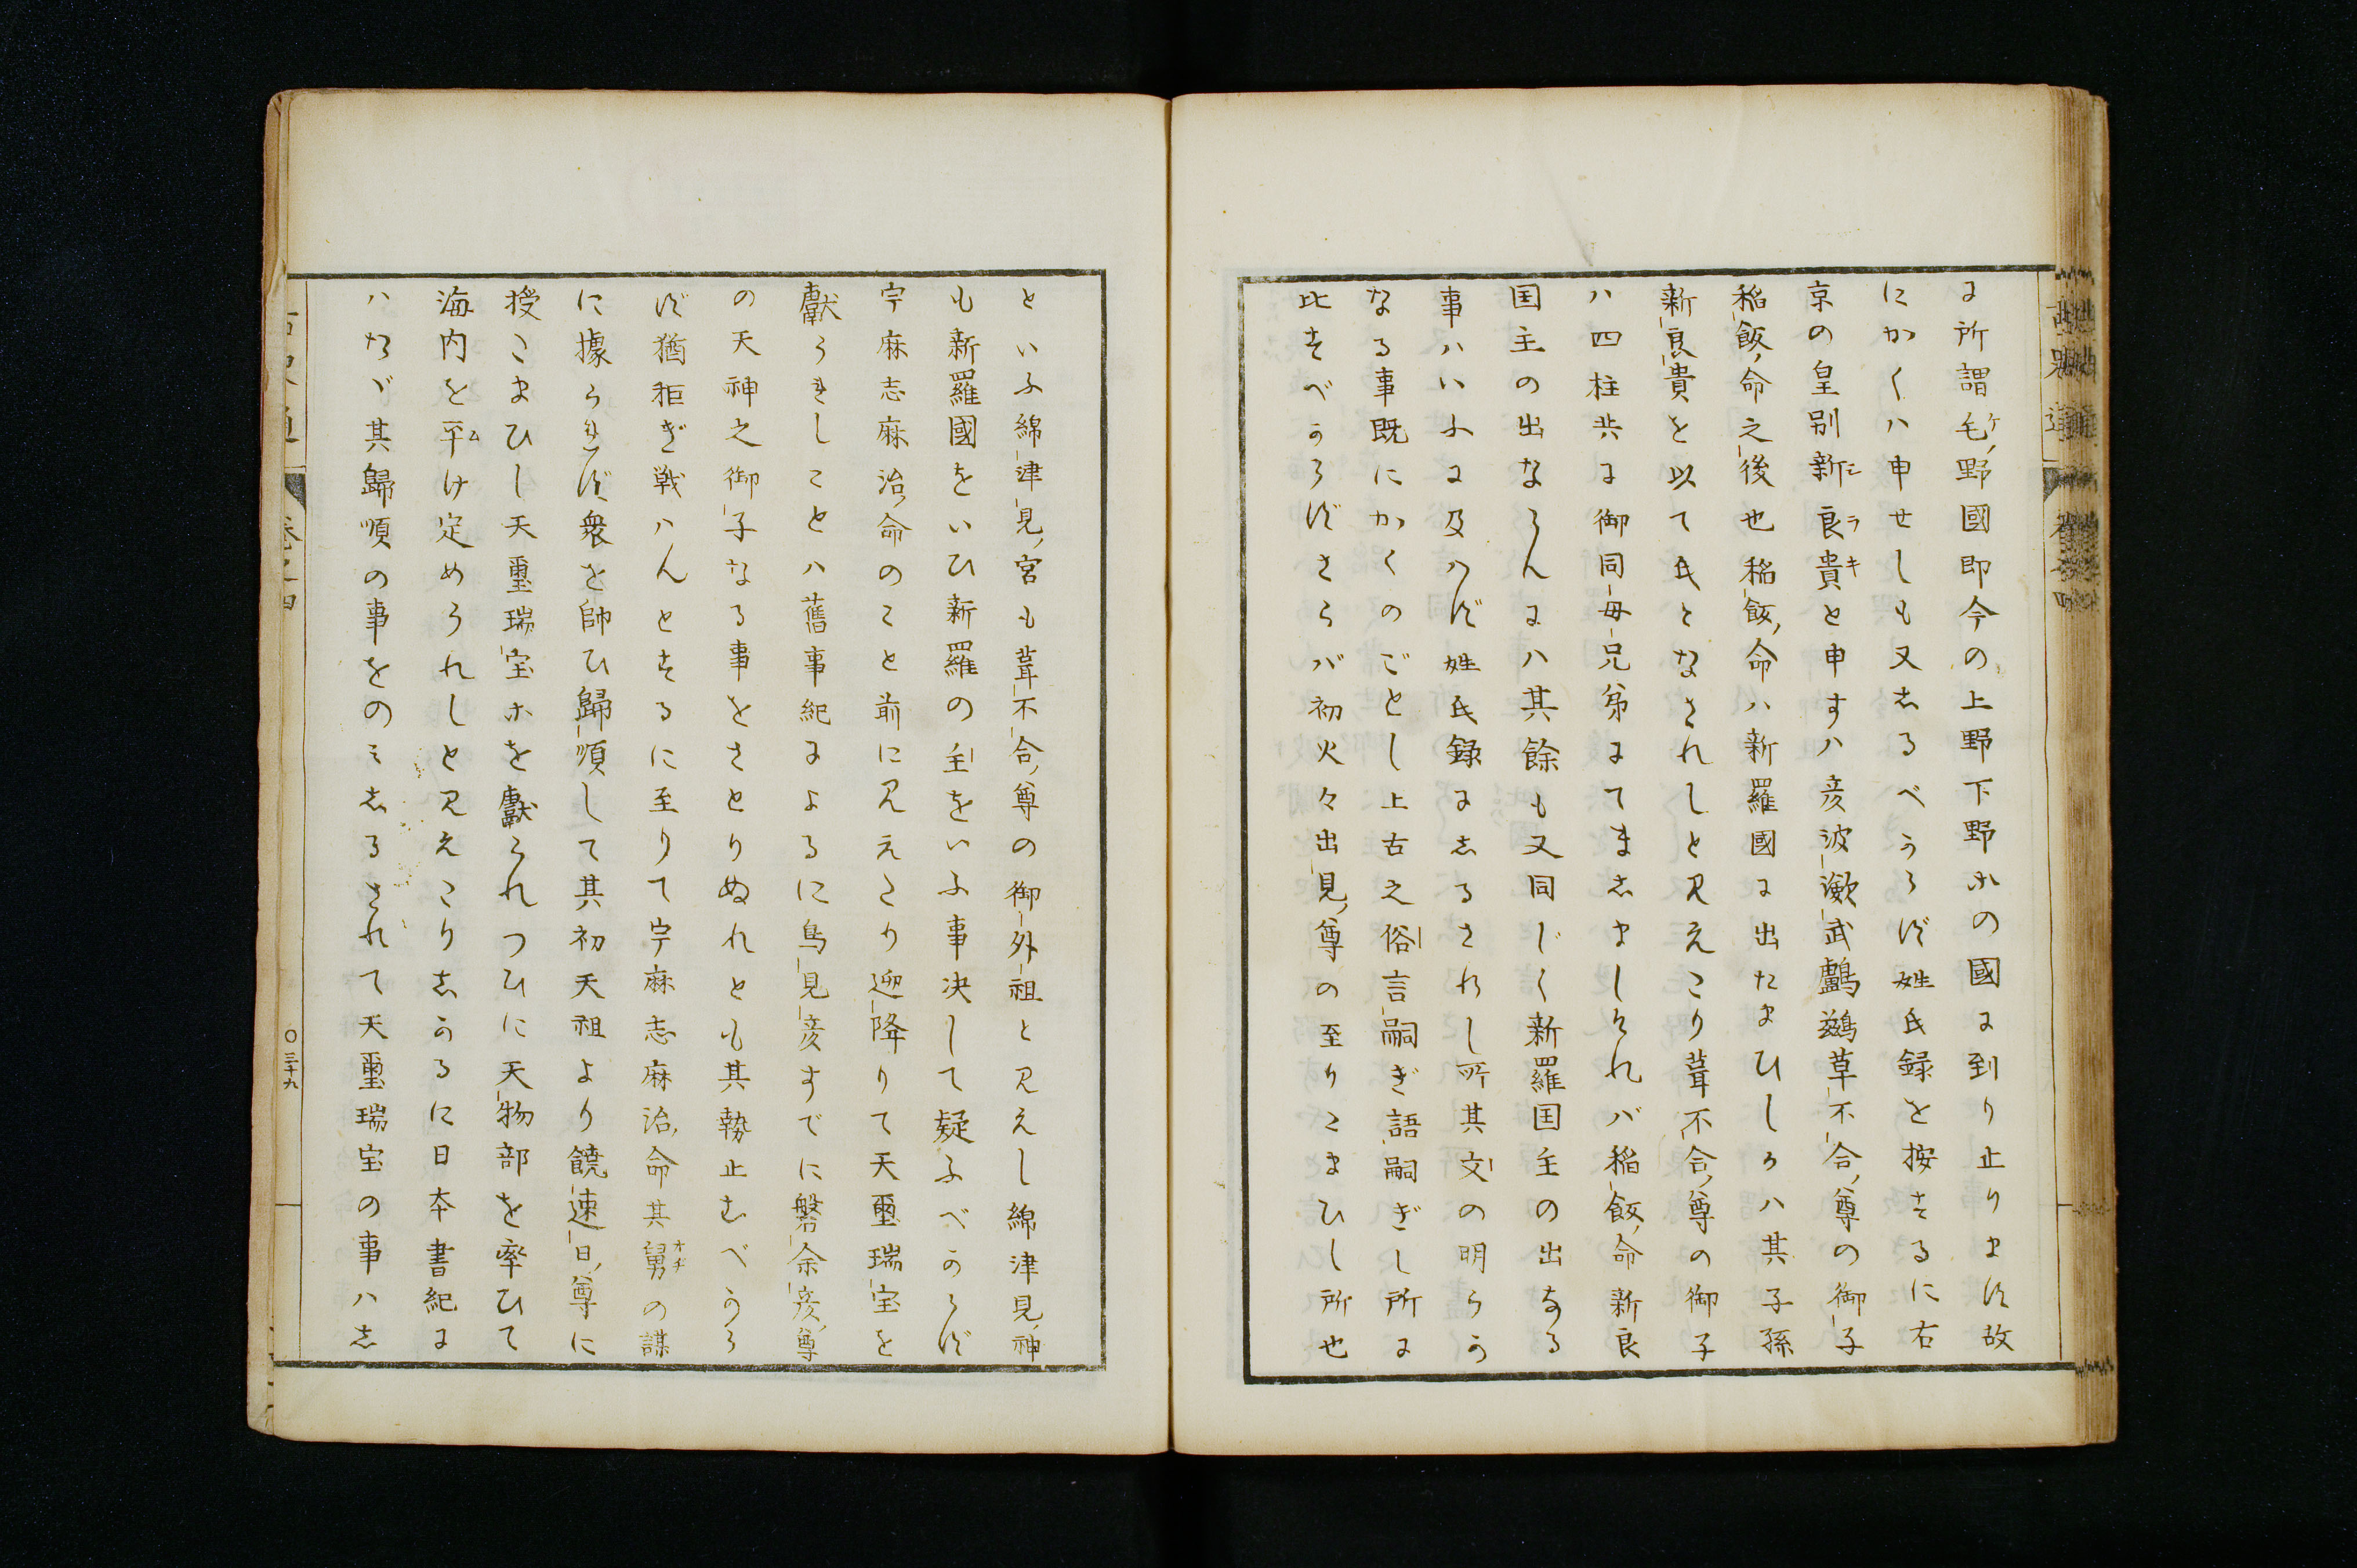 に所謂毛野國即今の上野下野ホの國に到り止ります故
にかくハ申せしも又志るべからず姓氏録を按ずるに右
京の皇別新良貴と申すハ彦波瀲武鸕鷀草不合尊の御子
稲飯命之後也稲飯命ハ新羅國に出たまひしかハ其子孫
新良貴を以て氏となされしと見えたり葺不合尊の御子
ハ四柱共に御同母兄弟にてましましそれバ稲飯命新良
国主の出ならんにハ其餘も又同じく新羅国主の出なる
事ハいふに及ハず姓氏録に志るされし所其文の明らか
なる事既にかくのごとし上古之俗言嗣ぎ語嗣ぎし所に
比すべからずさらバ初火々出見尊の至りたまひし所也
といふ綿津見宮も葺不合尊の御外祖と見えし綿津見神
も新羅國をいひ新羅の主をいふ事決して疑ふべからず
宇麻志麻治命のこと前に見えたり迎降りて天璽瑞宝を
獻られしことハ舊事紀によるに鳥見彦すでに磐余彦尊
の天神之御子なる事をさとりぬれとも其勢止むべから
ず猶拒ぎ戦ハんとするに至りて宇麻志麻治命其舅の謀
に據られず衆を帥ひ歸順して其初天祖より饒速日尊に
授たまひし天璽瑞宝ホを獻られつひに天物部を率ひて
海内を平け定められしと見えたり志かるに日本書紀に
ハたゞ其歸順の事をのミ志るされて天璽瑞宝の事ハ志
ケ
シラキ
オチ
ム
古史通
卷之四
〇三十九